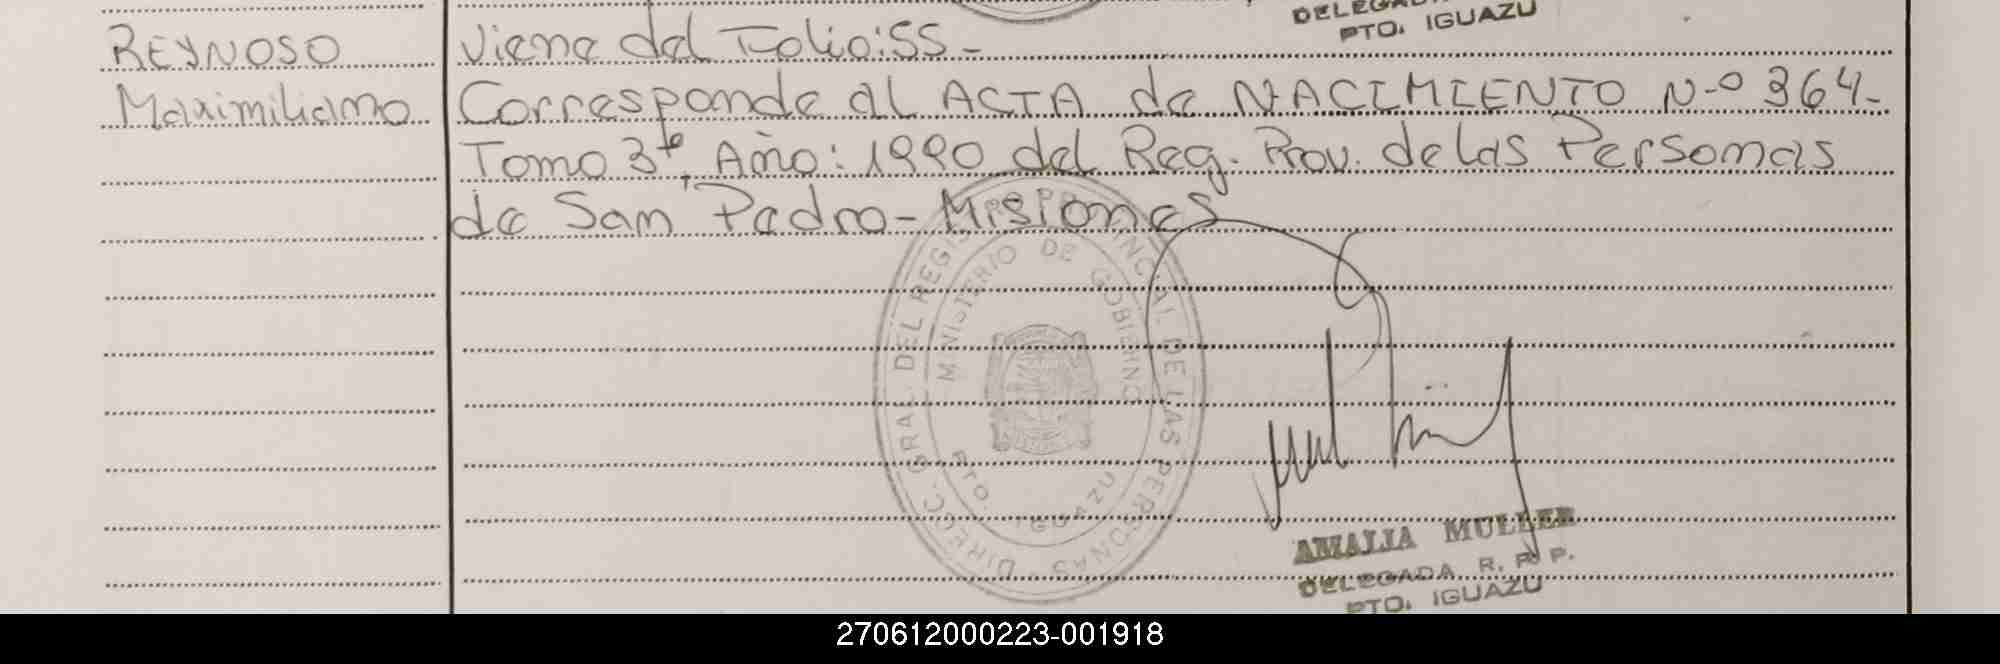 DELEGADA
PTO. IGUAZU
REYNOSO
Maximiliano
Viene del Folio: 55.-
Corresponde al ACTA de NACIMIENTO N-º 364-
Tomo 3º, Año: 1990 del Reg. Prov. de las Personas
de San Pedro - Misiones
DIRECC. GRAL. DEL REGISTRO PROVINCIAL DE LAS PERSONAS
MINISTERIO DE GOBIERNO
PTO. IGUAZU
AMALIA MULLER
DELEGADA R. P. P.
PTO. IGUAZU
270612000223-001918